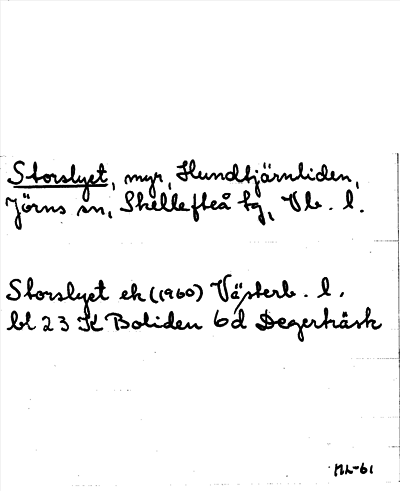 Storslyet, myr, Hundtjärnliden,
Jörns sn, Skellefteå tg, Vb. l.
Storslyet ek (1960) Västerb. l.
bl 23 K Boliden 6d Degerträsk
ML-61